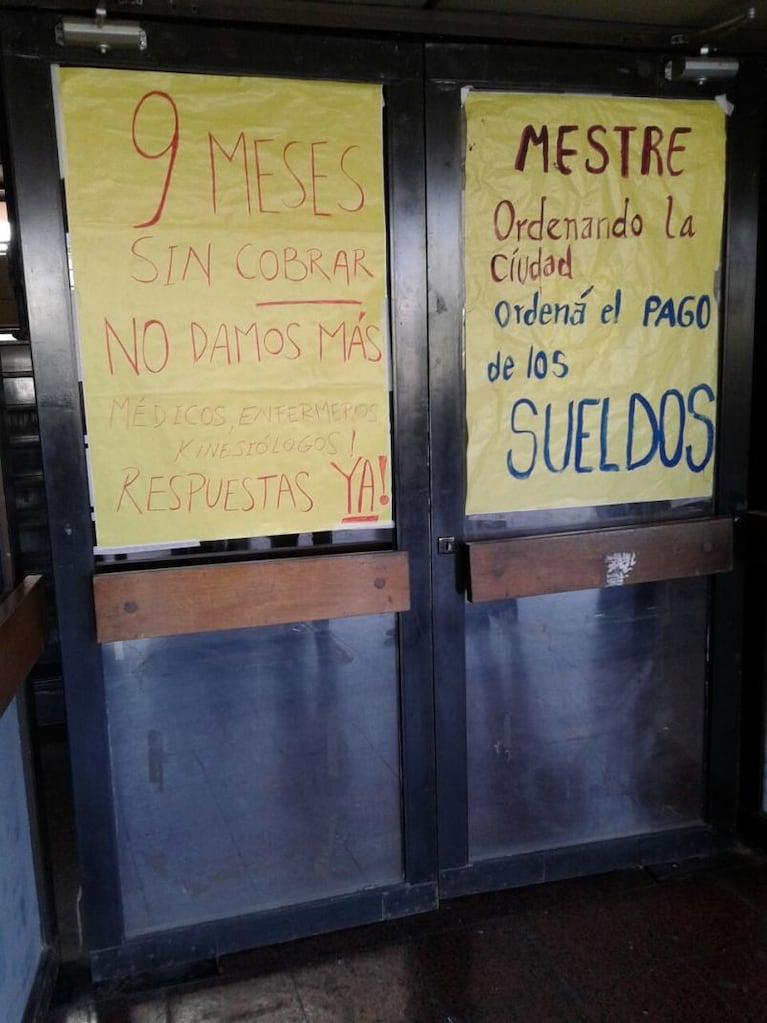 9 MESES
SIN COBRAR
NO DAMOS MÁS
MÉDICOS, ENFERMEROS,
KINESIÓLOGOS!
RESPUESTAS YA!
MESTRE
Ordenando la
ciudad
ordená el PAGO
de los
SUELDOS